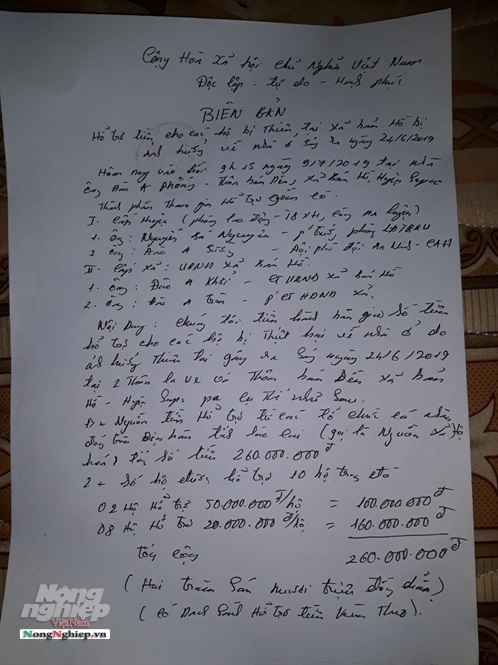 Cộng Hòa Xã hội Chủ Nghĩa Việt Nam
Độc lập - tự do - Hạnh phúc
BIÊN BẢN
Hỗ trợ tiền cho các hộ bị Thiên tai xã bản Hồ bị
ảnh hưởng về nhà ở sáng ra ngày 24/6/2019
Hôm nay vào hồi 9h15 ngày 9/7/2019 tại nhà
ông Đào A Phống - Thôn bản Dền, xã Bản Hồ, Huyện Sapa
Thành phần Tham gia Hỗ trợ gồm có
I. Cấp Huyện (phòng lao Động - TBXH, công an huyện)
1. Ông: Nguyễn Bá Nguyên - p' trưởng phòng LĐTBXH
2 ông: Đào A Sướng - Đội phó đội An Ninh - CAH
II. Cấp xã: UBND xã Bản Hồ
1. Ông: Đào A Khời - CT UBND xã Bản Hồ
2. Ông: Đào A Trân - p' CT HĐND xã.
Nội Dung: chúng tôi tiến hành bàn giao số tiền
hỗ trợ cho các hộ bị Thiệt hại về nhà ở do
ảnh hưởng Thiên Tai gây ra sáng ngày 24/6/2019
tại 2 Thôn la ve và Thôn bản Dền xã Bản
Hồ - Huyện Sapa cụ Thể như sau.
Nguồn tiền Hỗ trợ từ các tổ chức cá nhân
đóng trên Địa bàn tỉnh lào cai (gọi là Nguồn xã hội
hoá) tổng số tiền 260.000.000đ
2 + Số hộ được hỗ trợ 10 hộ trong đó
02 Hộ Hỗ trợ 50.000.000đ/hộ = 100.000.000đ
08 Hộ Hỗ trợ 20.000.000đ/hộ = 160.000.000đ
tổng cộng 260.000.000đ
(Hai trăm sáu mươi triệu đồng chẵn)
(có Danh sách Hỗ trợ tiền kèm Theo).
Nông nghiệp
Việt Nam
NongNghiep.vn